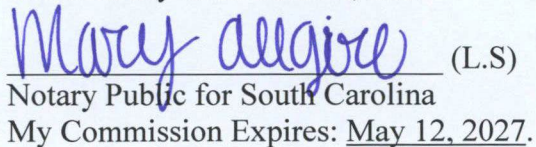 Mary Allgire (L.S)
Notary Public for South Carolina
My Commission Expires: May 12, 2027.